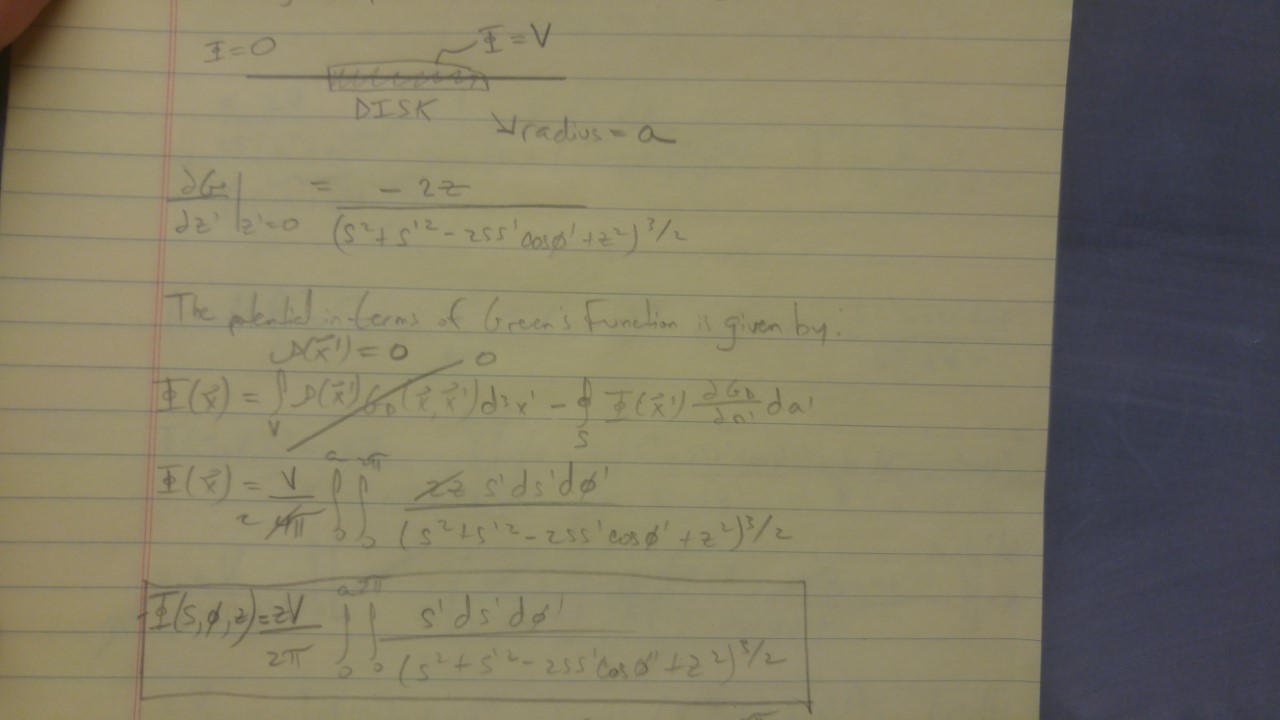 Φ=0 Φ=V
DISK
radius = a
∂G/∂z' |z'=0 = -2z / (s²+s'²-2ss'cosφ'+z²)^3/2
The potential in terms of Green's Function is given by:
ρ(x⃗')=0 0
Φ(x⃗) = ∫_V ρ(x⃗')G_D(x⃗,x⃗')d³x' - ∮_S Φ(x⃗') ∂G_D/∂n' da'
Φ(x⃗) = V/4π 2 ∫_0^a ∫_0^2π 2z s'ds'dφ' / (s²+s'²-2ss'cosφ'+z²)^3/2
Φ(s,φ,z)=zV/2π ∫_0^a ∫_0^2π s'ds'dφ' / (s²+s'²-2ss'cosφ'+z²)^3/2